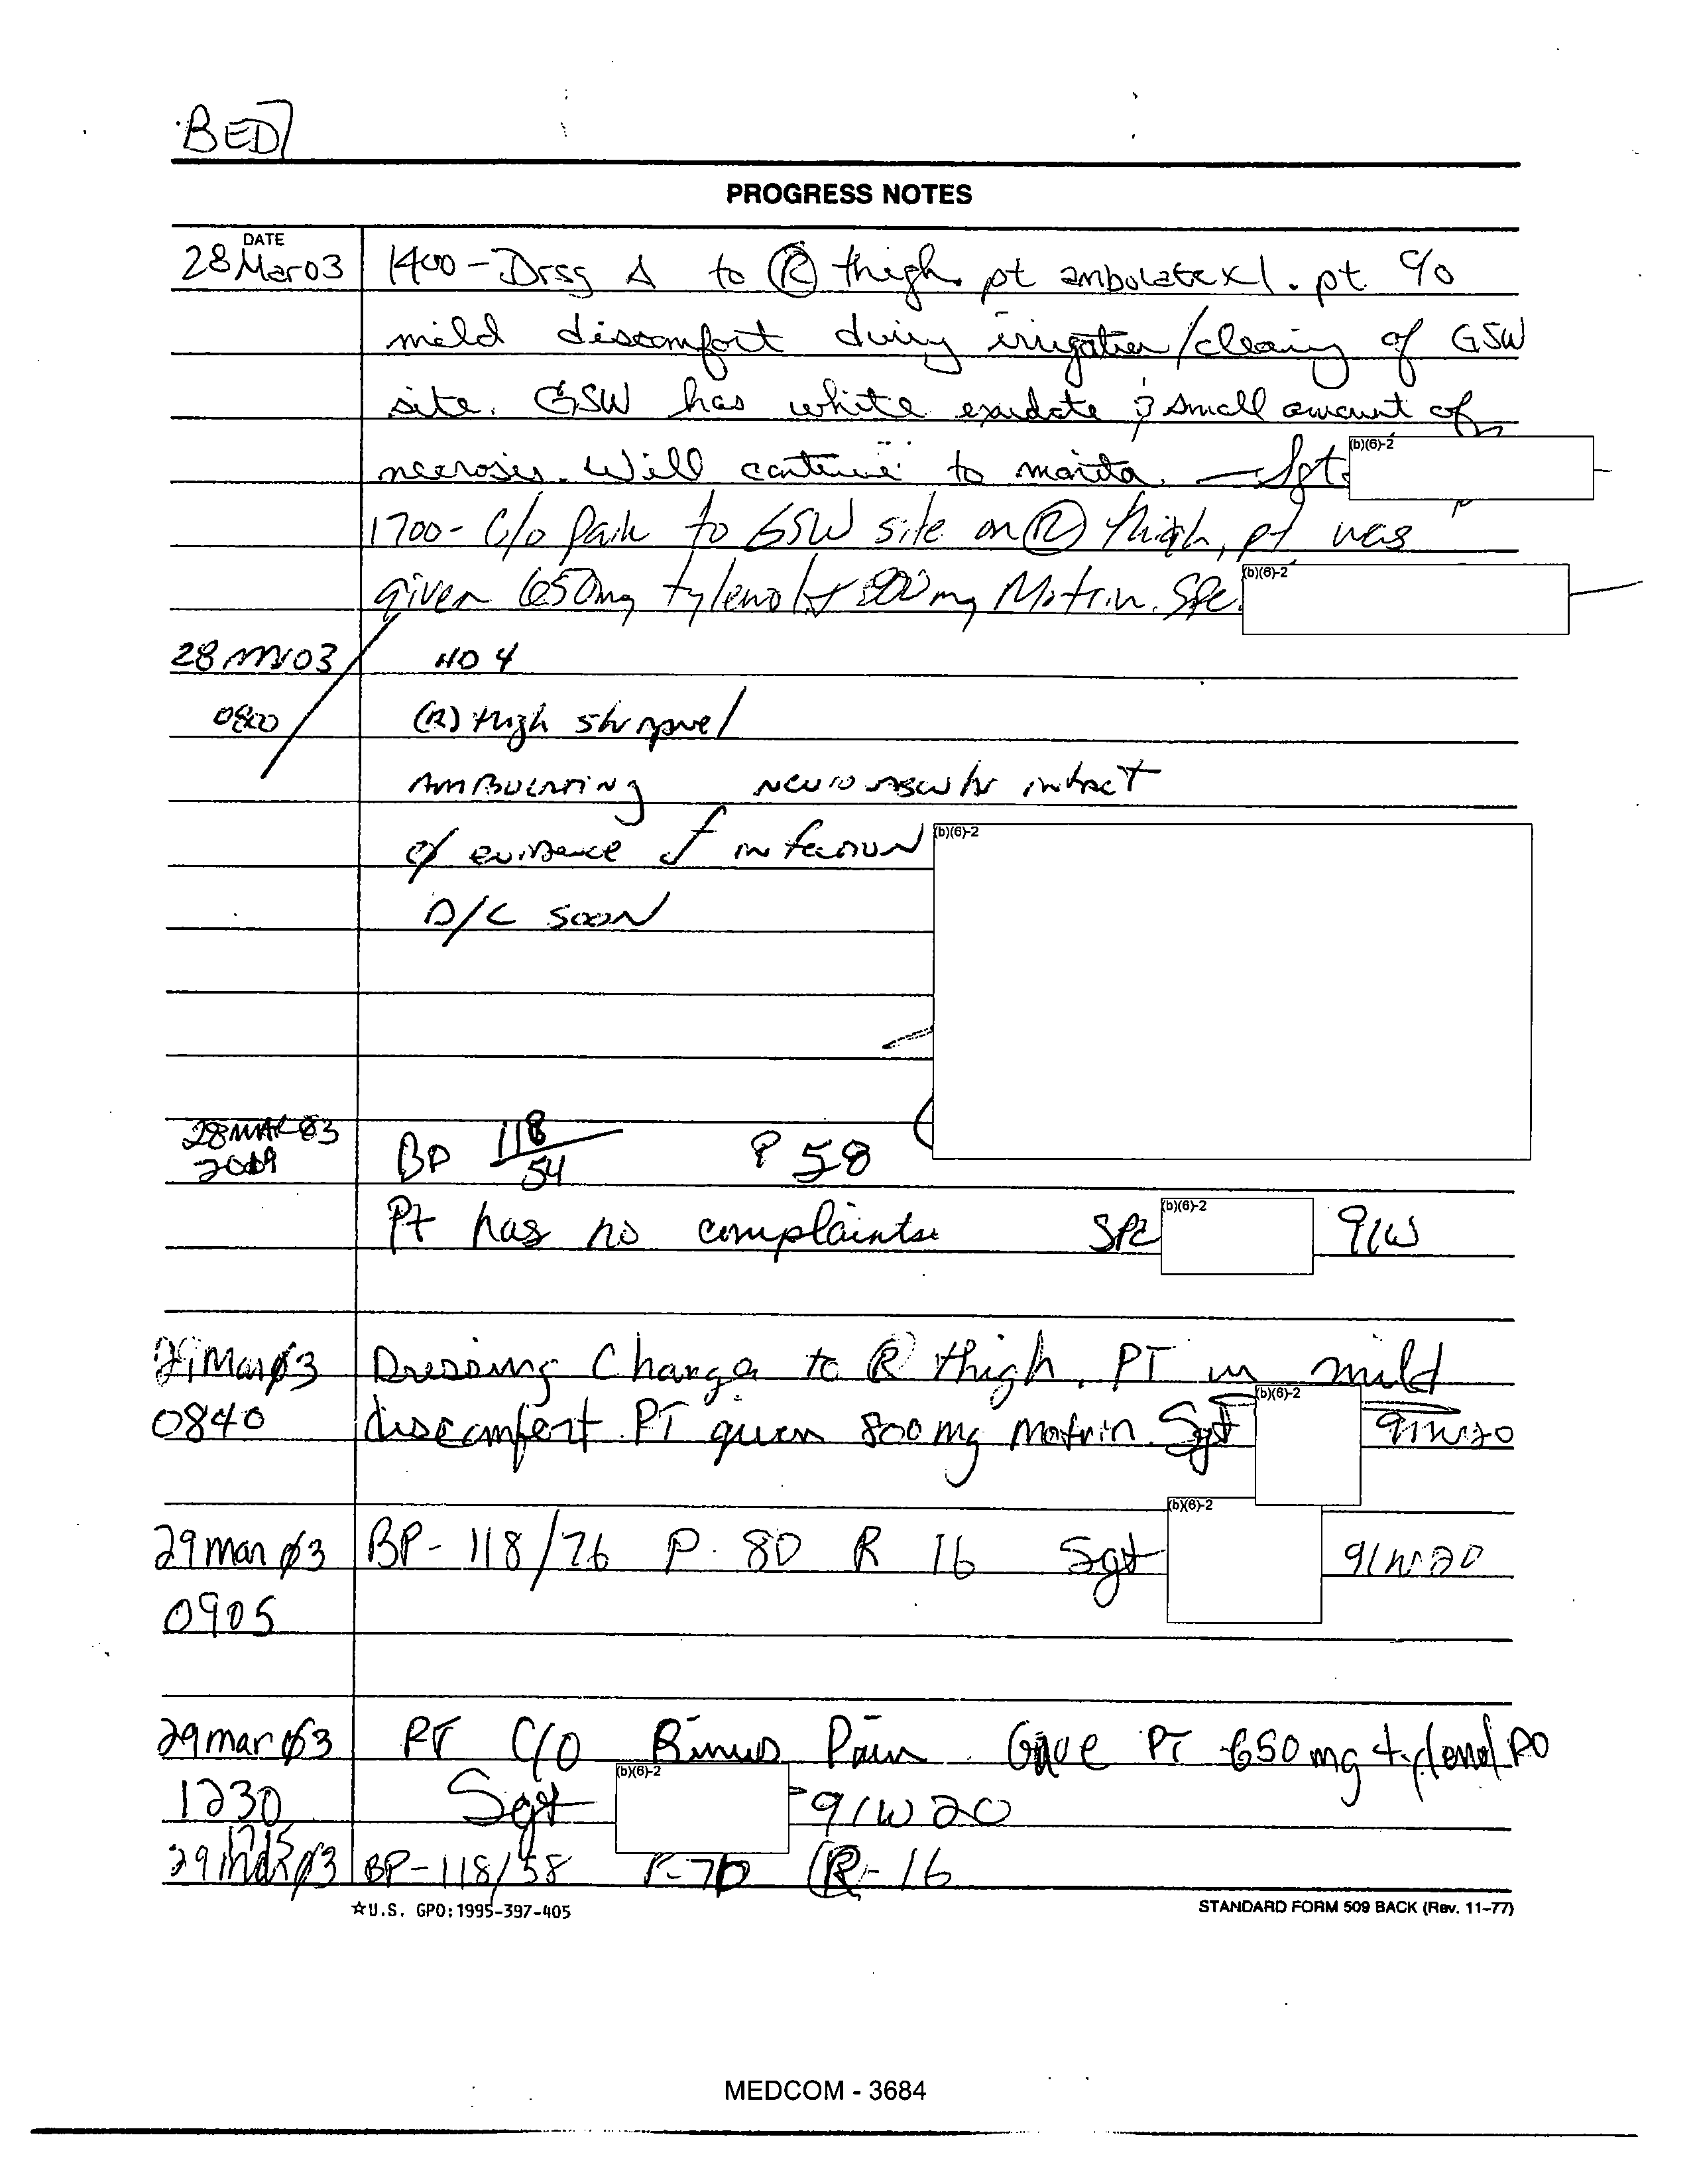 BED 7
PROGRESS NOTES
DATE
28 Mar 03 1400 - Drsg Δ to Ⓡ thigh. pt ambulate x 1. pt c/o
mild discomfort during irrigation/cleaning of GSW
site. GSW has white exudate & small amount of
necrosis. Will continue to monitor — Sgt (b)(6)-2
1700 - C/o Pain to GSW site on Ⓡ thigh, pt was
given 650mg tylenol & 800mg Motrin. Spc. (b)(6)-2
28 Mar 03 HD 4
0800 (R) thigh shrapnel
AMBULATING neurovascular intact
ø evidence of infection (b)(6)-2
D/C SOON
28 MAR 03 BP 118/54 P 58
2009
Pt has no complaints SPC (b)(6)-2 91W
29 Mar 03 Dressing Change to Ⓡ thigh. PT in mild
0840 discomfort PT given 800 mg motrin. Sgt (b)(6)-2 91W20
29 Mar 03 BP - 118/76 P - 80 R 16 Sgt (b)(6)-2 91W20
0905
29 mar 03 PT C/O Sinus Pain Gave PT 650 mg tylenol PO
1230 Sgt (b)(6)-2 91W20
1715
29 mar 03 BP - 118/58 P - 70 R - 16
☆U.S. GPO: 1995-397-405 STANDARD FORM 509 BACK (Rev. 11-77)
MEDCOM - 3684